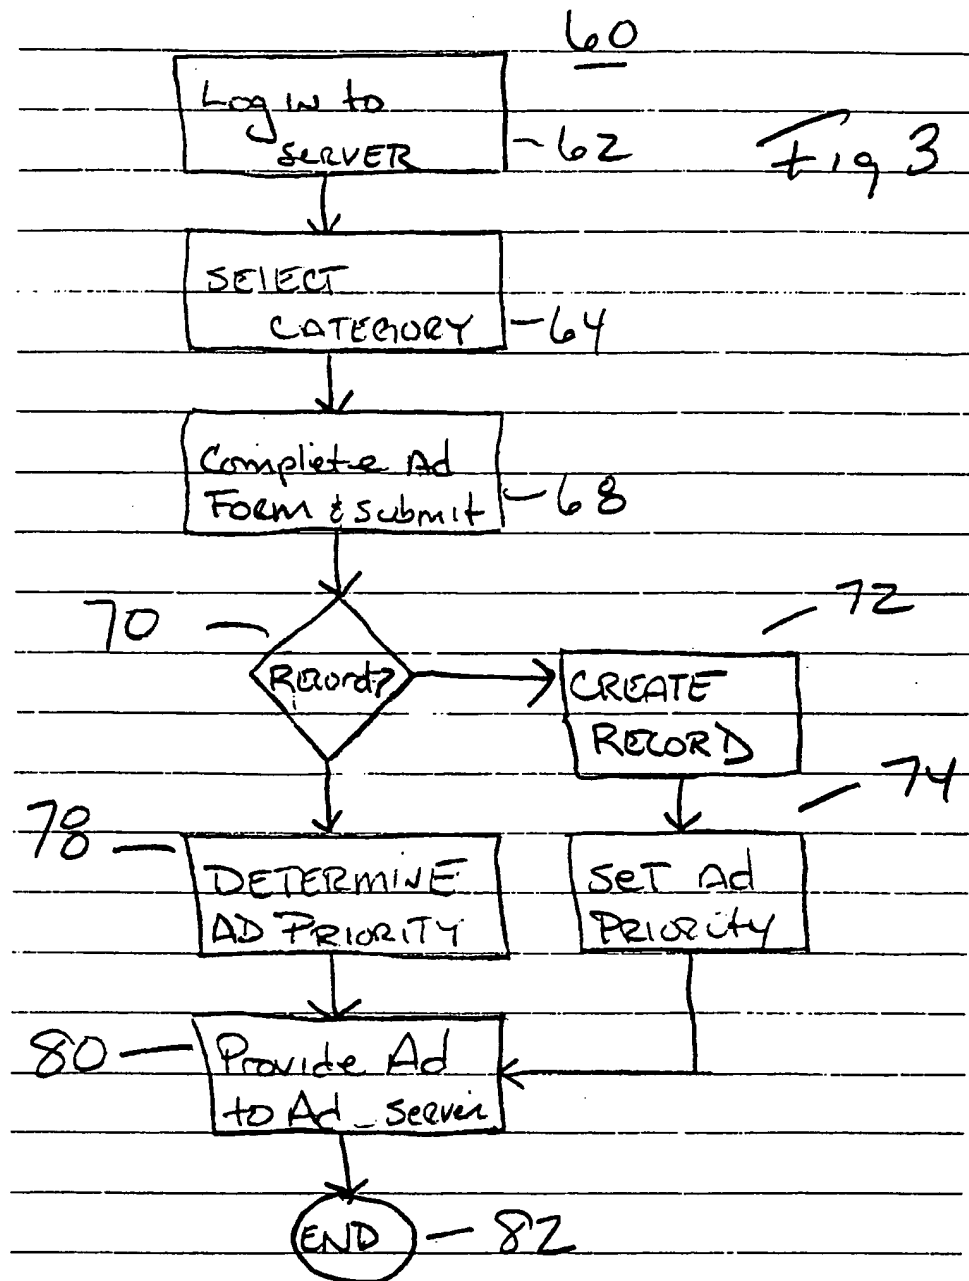 60
Log in to
server
-62
Fig 3
SELECT
CATEGORY
-64
Complete Ad
Form & Submit
-68
70
Record?
72
CREATE
RECORD
74
78
DETERMINE
AD PRIORITY
Set Ad
Priority
80
Provide Ad
to Ad_server
END
-82